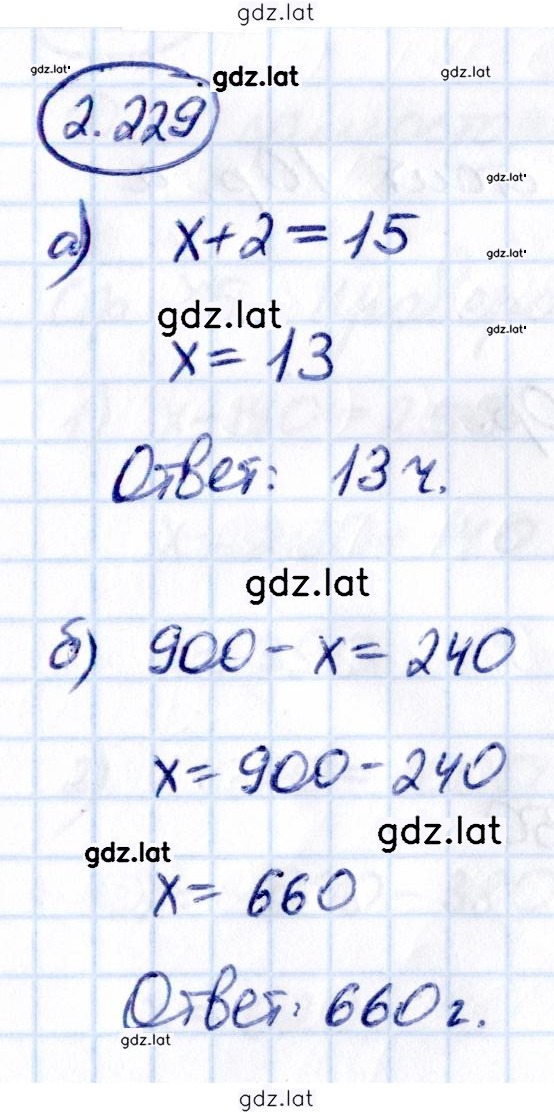 gdz.lat
gdz.lat
gdz.lat
gdz.lat
2.229
gdz.lat
а) x+2=15
gdz.lat
gdz.lat
gdz.lat
x= 13
Ответ: 13 ч.
gdz.lat
б) 900- x= 240
x= 900- 240
gdz.lat
gdz.lat
x= 660
Ответ: 660 г.
gdz.lat
gdz.lat